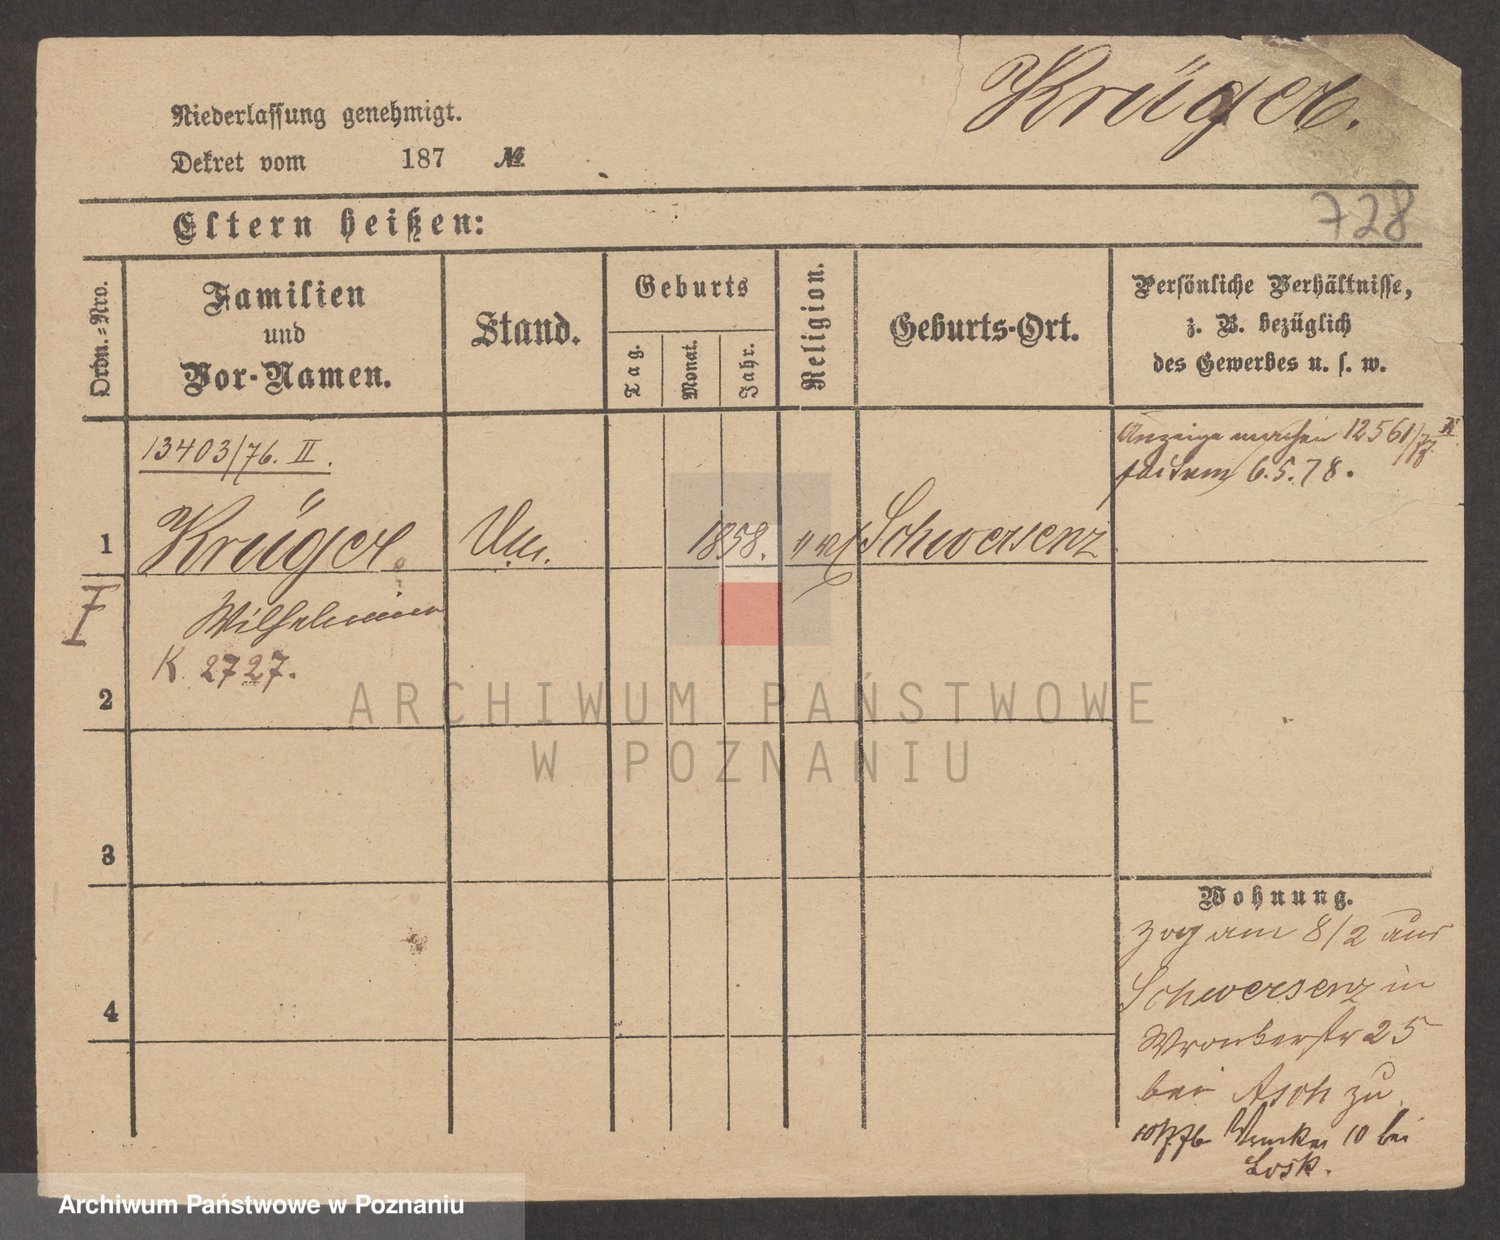 Krüger.
Niederlassung genehmigt.
Dekret vom 187 №
728
Eltern heißen:
Ordn.-Nro.
Familien
und
Vor-Namen.
Stand.
Geburts
Tag.
Monat.
Jahr.
Religion.
Geburts-Ort.
Persönliche Verhältnisse,
z. B. bezüglich
des Gewerbes u. s. w.
13403/76. II.
Anzeige machen 12561/78 II
factum 6.5.78.
1
Krüger
1858.
Schwersenz
I
Wilhelmine
K. 2727.
2
3
4
Wohnung.
zog am 8/2 aus
Schwersenz in
Wronkerstr 25
bei Asch zu
10/7.76 Wronker 10 bei
Losk.
ARCHIWUM PAŃSTWOWE
W POZNANIU
Archiwum Państwowe w Poznaniu